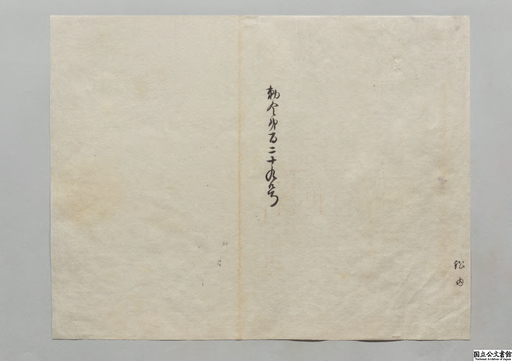 勅令第百二十九号
国立公文書館
National Archives of Japan